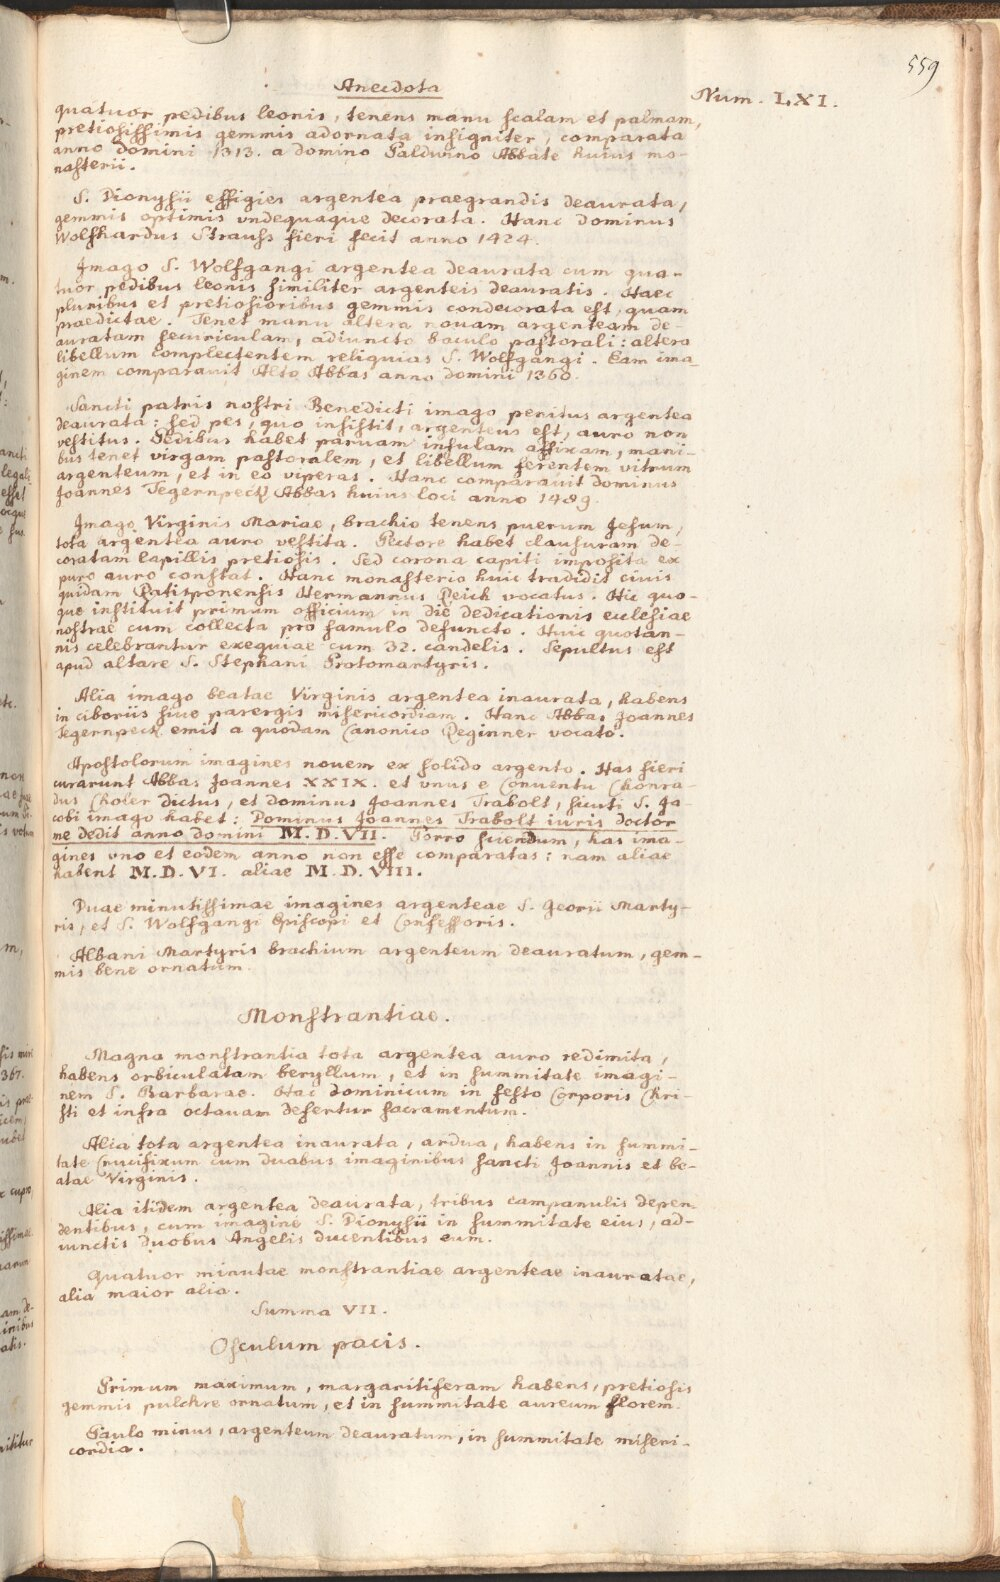 559
Anecdota
Num. LXI.
quatuor pedibus leonis, tenens manu scalam et palmam,
pretiosissimis gemmis adornata insigniter, comparata
anno domini 1313. a domino Baldwino Abbate huius mo-
nasterii.
S. Dionysii effigies argentea praegrandis deaurata,
gemmis optimis vndequaque decorata. Hanc dominus
Wolfhardus Strauss fieri fecit anno 1424.
Imago S. Wolfgangi argentea deaurata cum qua-
tuor pedibus leonis similiter argenteis deauratis. Haec
pluribus et pretiosioribus gemmis condecorata est, quam
praedictae. Tenet manu altera nouam argenteam de-
auratam securiculam, adiuncto baculo pastorali: altera
libellum complectentem reliquias S. Wolfgangi. Eam ima-
ginem comparauit Alto Abbas anno domini 1360.
Sancti patris nostri Benedicti imago penitus argentea
deaurata: sed pes, quo insistit, argenteus est, auro non
vestitus. Pedibus habet paruam insulam affixam, mani-
bus tenet virgam pastoralem, et libellum ferentem vitrum
argenteum, et in eo viperas. Hanc comparauit dominus
Joannes Tegernpeck Abbas huius loci anno 1489.
Imago Virginis Mariae, brachio tenens puerum Jesum,
tota argentea auro vestita. Pectore habet clausuram de-
coratam lapillis pretiosis. Sed corona capiti imposita ex
puro auro constat. Hanc monasterio huic tradidit ciuis
quidam Ratisponensis Hermannus Reich vocatus. Hic quo-
que instituit primum officium in die dedicationis ecclesiae
nostrae cum collecta pro famulo defuncto. Huic quotan-
nis celebrantur exequiae cum 32. candelis. Sepultus est
apud altare S. Stephani Protomartyris.
Alia imago beatae Virginis argentea inaurata, habens
in ciboriis siue parergis misericordiam. Hanc Abbas Joannes
Tegernpeck emit a quodam Canonico Reginner vocato.
Apostolorum imagines nouem ex solido argento. Has fieri
curarunt Abbas Joannes XXIX. et vnus e Conuentu Chonra-
dus Choler dictus, et dominus Joannes Trabolt, sicuti S. Ja-
cobi imago habet: Dominus Joannes Trabolt iuris doctor
me dedit anno domini M.D.VII. Porro sciendum, has ima-
gines vno et eodem anno non esse comparatas: nam aliae
habent M.D.VI. aliae M.D.VIII.
Duae minutissimae imagines argenteae S. Georii Marty-
ris, et S. Wolfgangi Episcopi et Confessoris.
Albani Martyris brachium argenteum deauratum, gem-
mis bene ornatum.
Monstrantiae.
Magna monstrantia tota argentea auro redimita,
habens orbiculatam beryllum, et in summitate imagi-
nem S. Barbarae. Hac dominicum in festo Corporis Chri-
sti et infra octauam defertur sacramentum.
Alia tota argentea inaurata, ardua, habens in summi-
tate Crucifixum cum duabus imaginibus sancti Joannis et be-
atae Virginis.
Alia itidem argentea deaurata, tribus campanulis depen-
dentibus, cum imagine S. Dionysii in summitate eius, ad-
iunctis duobus Angelis ducentibus eum.
Quatuor minutae monstrantiae argenteae inauratae,
alia maior alia.
Summa VII.
Osculum pacis.
Primum maximum, margaritiferam habens, pretiosis
gemmis pulchre ornatum, et in summitate aureum florem.
Paulo minus, argenteum deauratum, in summitate miseri-
cordia.